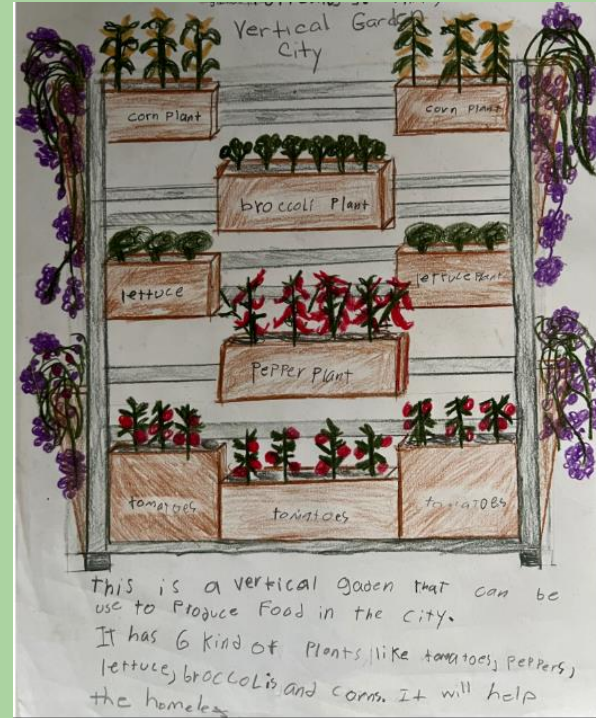 Vertical Garden
City
corn plant
corn plant
broccoli plant
lettuce
lettuce plant
PePPer Plant
tomatoes
tomatoes
tomatoes
this is a vertical gaden that can be
use to Produce Food in the city.
It has 6 kind of Plants like tomatoes, peppers,
lettuce, broccolis and corns. It will help
the homeless